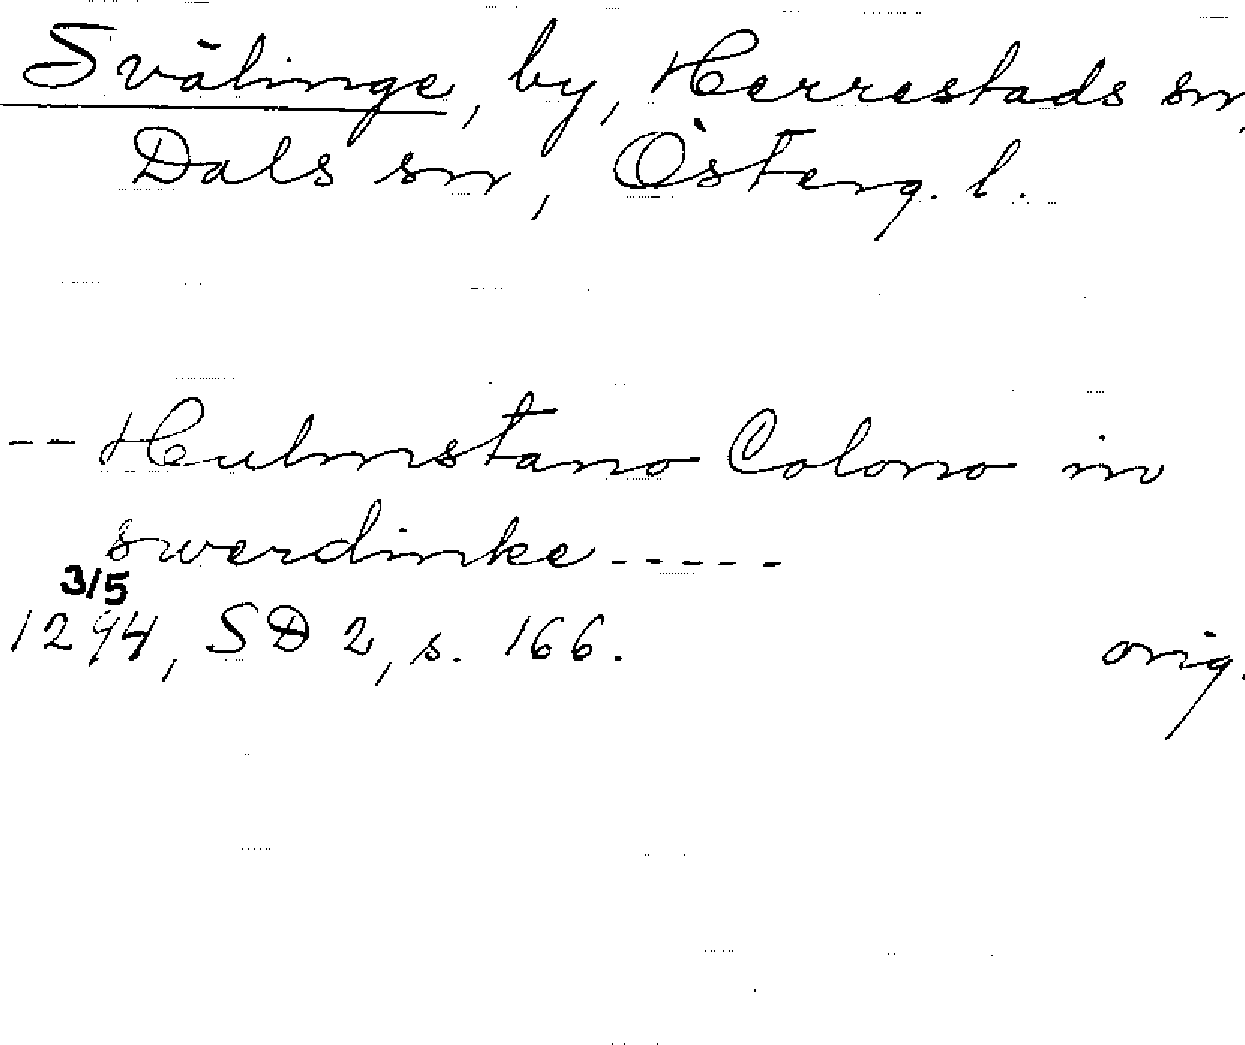 Svälinge, by, Herrestads sn,
Dals sn, Österg. l.
-- Hulmstano Colono in
swerdinke -----
3/5
1294, SD 2, s. 166. orig.